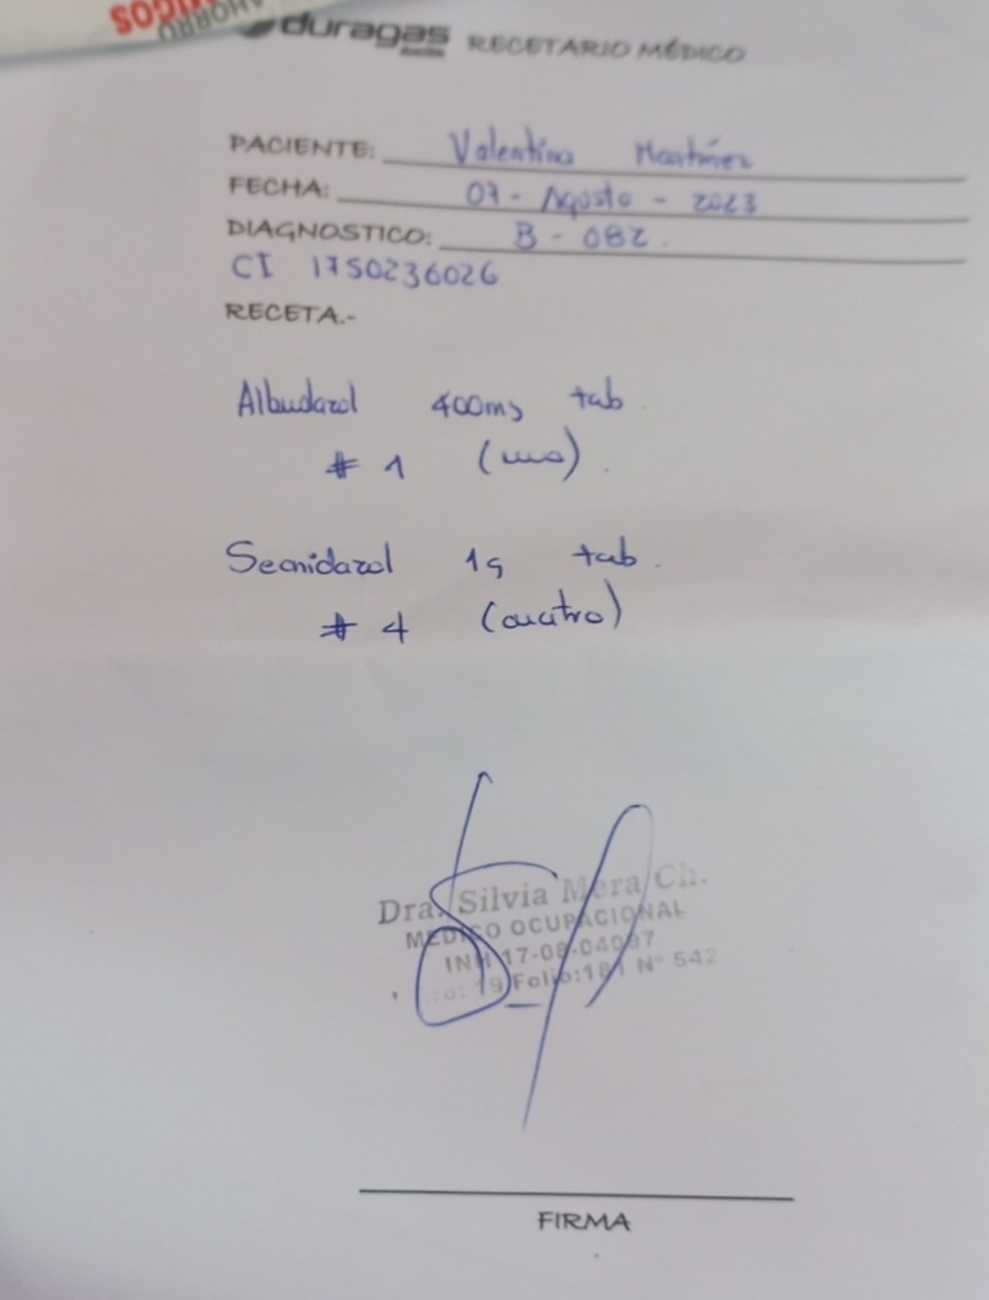 AHORRO
duragas RECETARIO MÉDICO
PACIENTE: Valentina Martínez
FECHA: 07 - Agosto - 2023
DIAGNOSTICO: B - 082.
CI 1750236026
RECETA.-
Albudazol 400mg tab.
# 1 (uno).
Secnidazol 1g tab.
# 4 (cuatro)
Dra. Silvia Mera Ch.
MEDICO OCUPACIONAL
INH 17-08-04097
19 Folio:181 N° 542
FIRMA